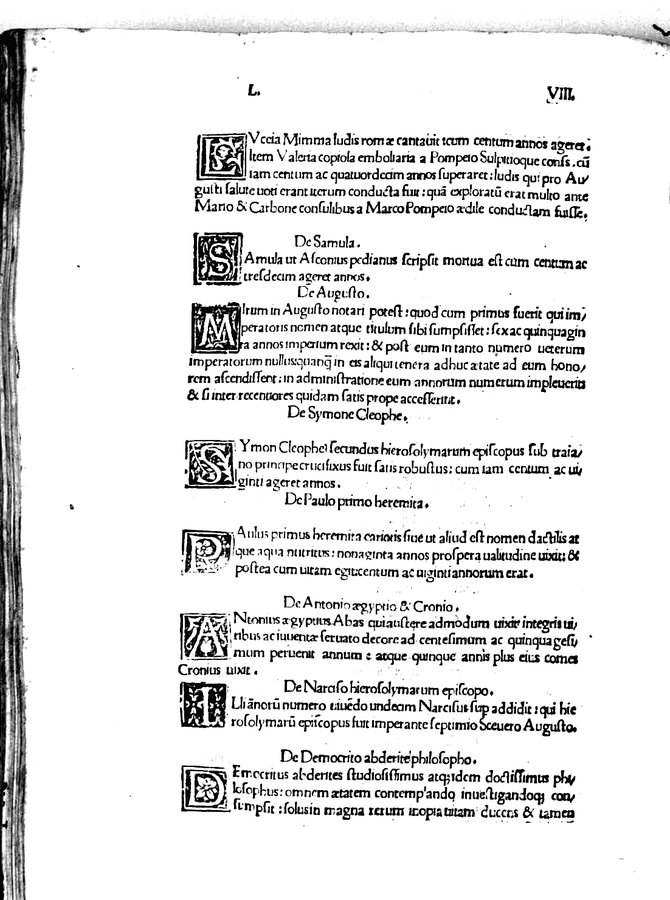 L. VIII.
LVccia Mimma ludis romæ cantauit : cum centum annos ageret.
Item Valeria copiola emboliaria a Pompeio Sulpitioque consS. cū
iam centum ac quatuordecim annos superaret : ludis qui pro Au/
gusti salute uoti erant iterum conducta fuit : quā exploratū erat multo ante
Mario & Carbone consulibus a Marco Pompeio ædile conductam fuisse.
De Samula.
SAmula ut Asconius pedianus scripsit mortua est cum centum ac
tresdecim ageret annos.
De Augusto.
MIrum in Augusto notari potest : quod cum primus fuerit qui im/
peratoris nomen atque titulum sibi sumpsisset : sex ac quinquagin
ta annos imperium rexit : & post eum in tanto numero ueterum
imperatorum nullus: quanq̄ in eis aliqui tenera adhuc ætate ad eum hono/
rem ascendissent : in administratione eum annorum numerum impleuerit
& si inter recentiores quidam satis prope accesserint.
De Symone Cleophe.
SYmon Cleophe secundus hierosolymarum episcopus sub traia/
no principe crucifixus fuit satis robustus : cum iam centum ac ui/
ginti ageret annos.
De Paulo primo heremita.
PAulus primus heremita cariotis siue ut aliud est nomen dactilis at
que aqua nutritus : nonaginta annos prospera ualitudine uixit: &
postea cum uitam egit: centum ac uiginti annorum erat.
De Antonio ægyptio & Cronio.
ANtonius ægyptius Abas qui austere admodum uixit integris ui/
ribus ac iuuentæ seruato decore ad centesimum ac quinquagesi/
mum peruenit annum : atque quinque annis plus eius comes
Cronius uixit.
De Narciso hierosolymarum episcopo.
ILli ānorū numero uiuēdo undecim Narcisus sup addidit : qui hie
rosolymarū episcopus fuit imperante septimio Sceuero Augusto.
De Democrito abderite philosopho.
DEmocritus abderites studiosissimus atq; idem doctissimus phy
losophus : omnem ætatem contemplando inuestigandoq; con/
sumpsit : solus in magna rerum inopia uitam ducens & tamen